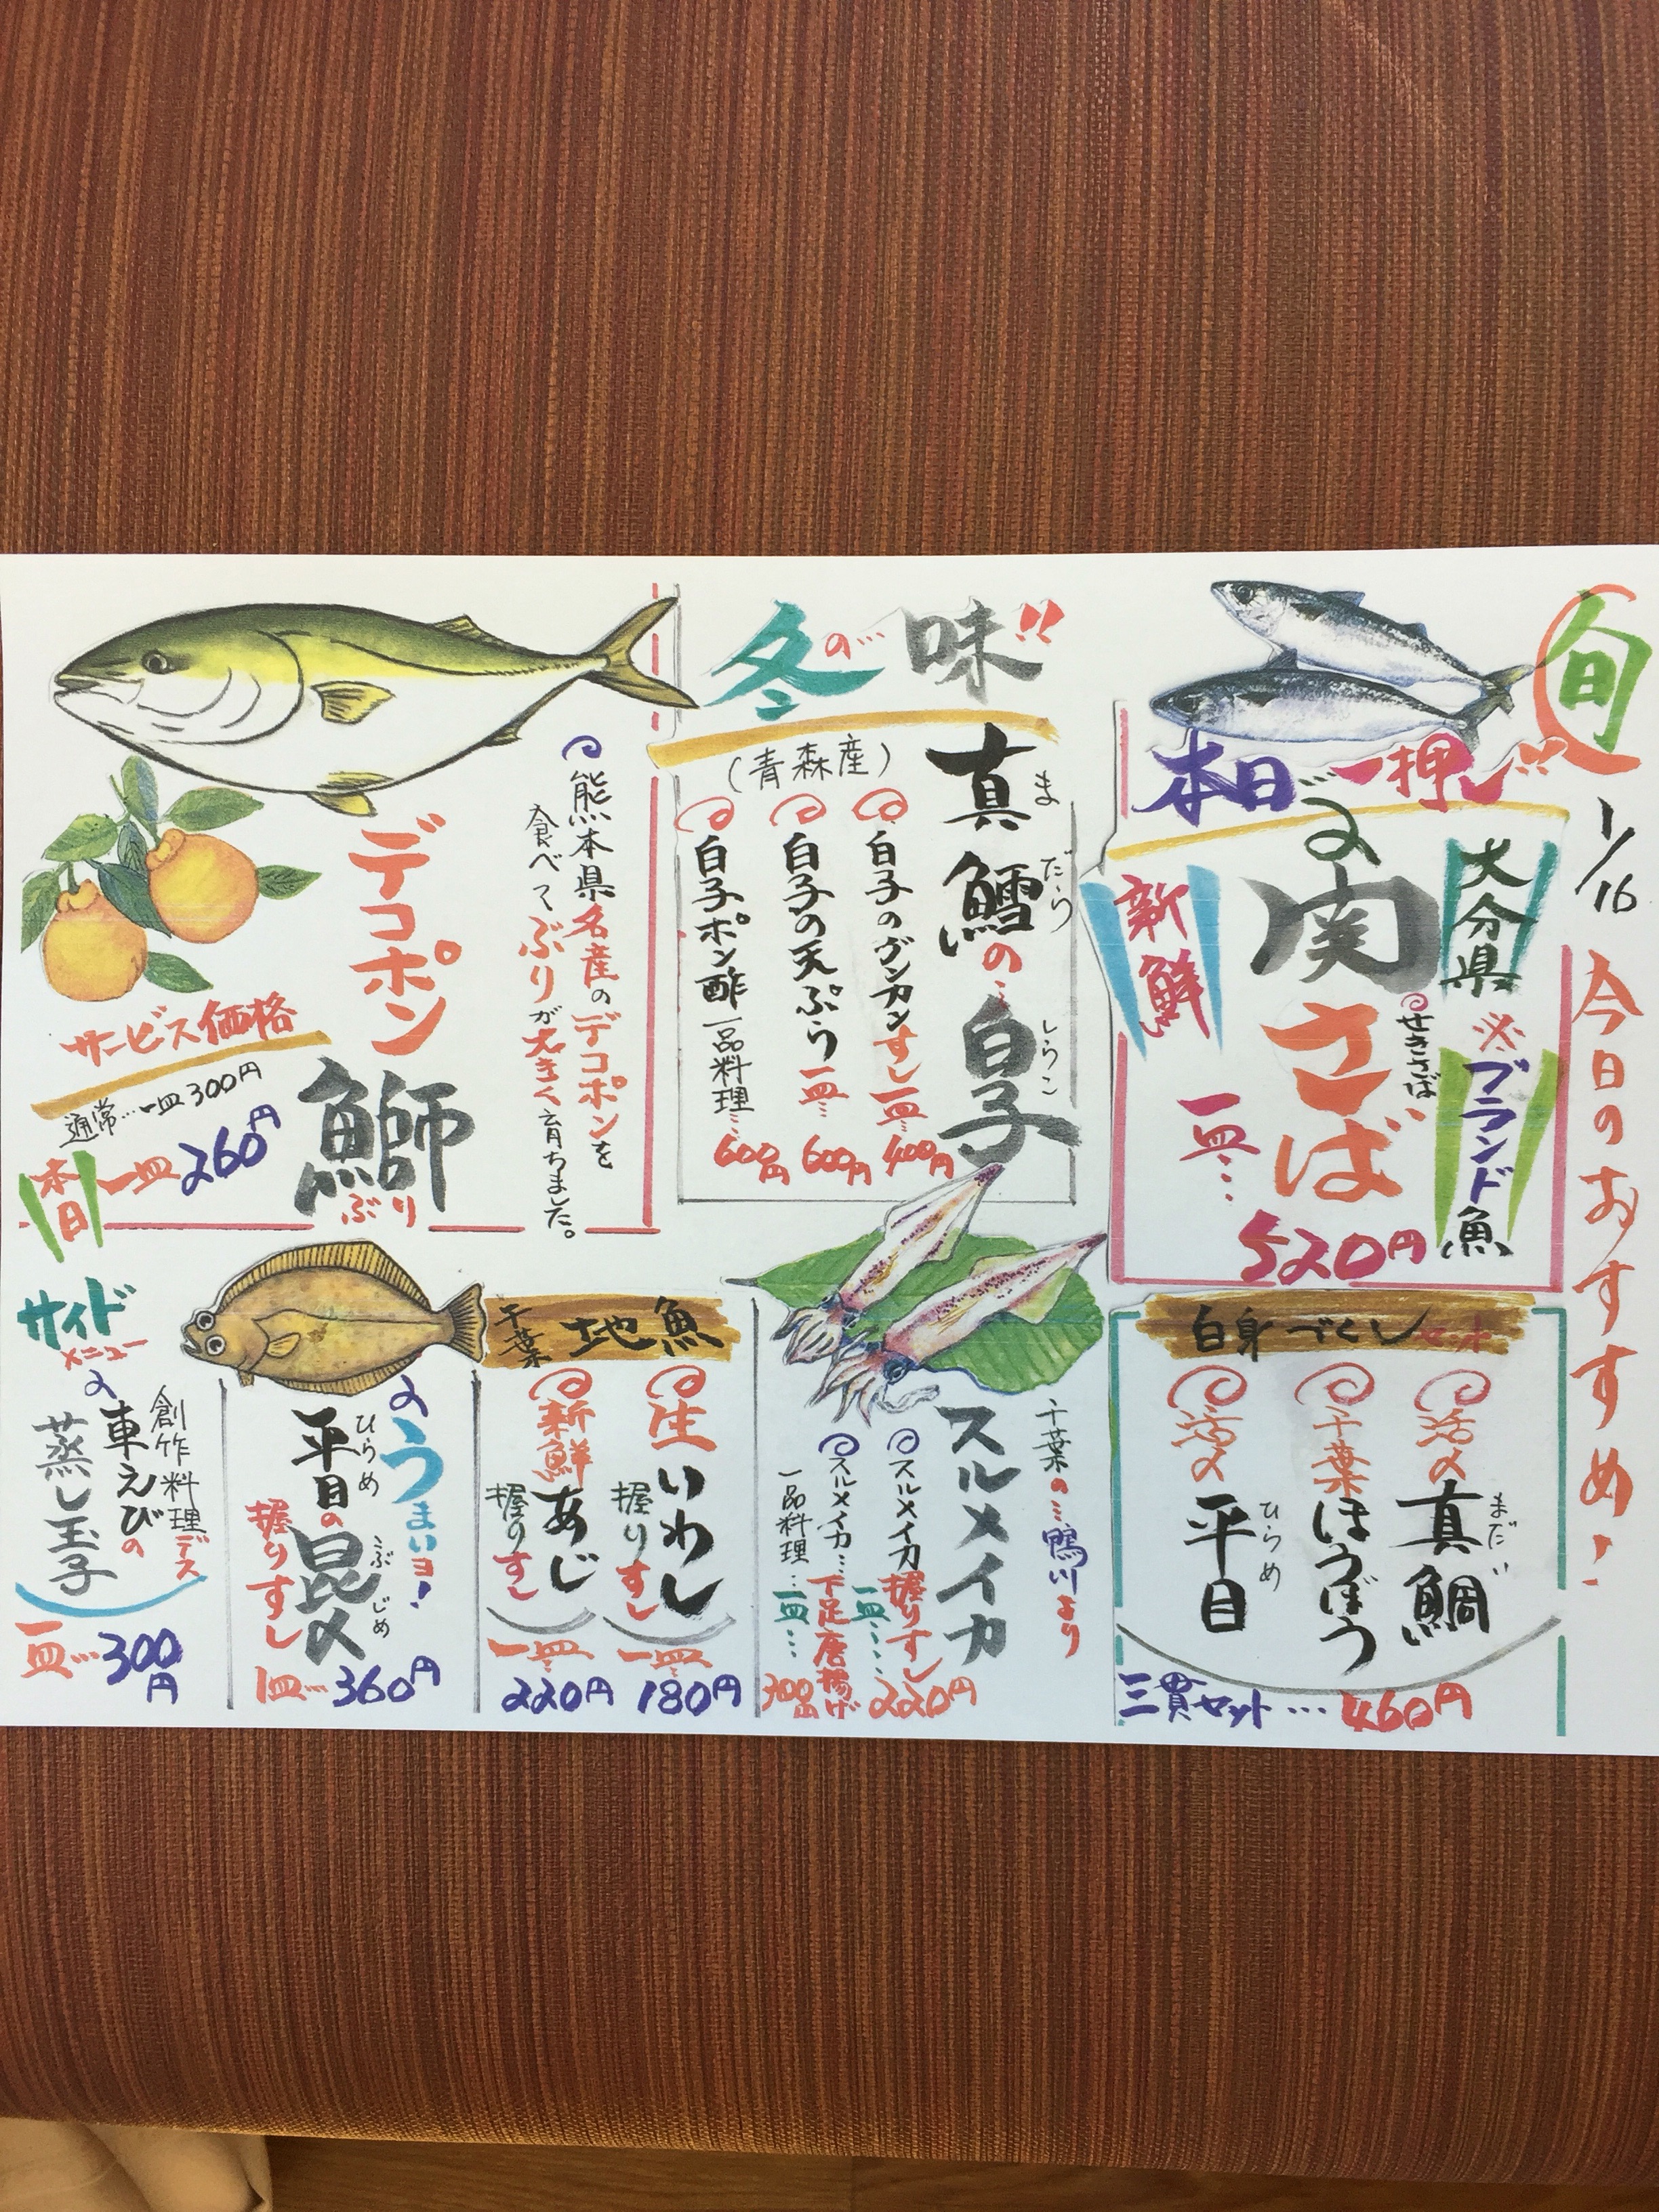 旬
1/16
今日のおすすめ!
本日一押し!!
大分県
※ブランド魚
関さば
せきさば
新鮮
一皿…
520円
冬の…味!!
真鱈の…白子
まだら
しらこ
(青森産)
白子のグンカンすし一皿…400円
白子の天ぷら一皿…600円
白子ポン酢一品料理…600円
熊本県名産のデコポンを
食べてぶりが大きく育ちました。
デコポン
鰤
ぶり
サービス価格
通常…一皿300円
本日一皿260円
白身づくしセット
活〆真鯛
まだい
千葉ほうぼう
活〆平目
ひらめ
三貫セット…460円
千葉の…鴨川より
スルメイカ
スルメイカ握りすし一皿…220円
スルメイカ…下足唐揚げ
一品料理…一皿…300円
千葉地魚
生いわし
握りすし
一皿…
180円
新鮮あじ
握りすし
一皿…
220円
うまいヨ!
平目の昆〆
ひらめ
こぶじめ
握りすし
1皿…360円
サイド
メニュー
創作料理デス
車えびの
蒸し玉子
一皿…300円